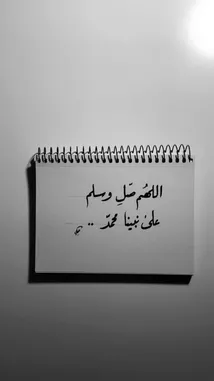 اللهُم صَلِ وسلم
على نبينا محمدّ ..